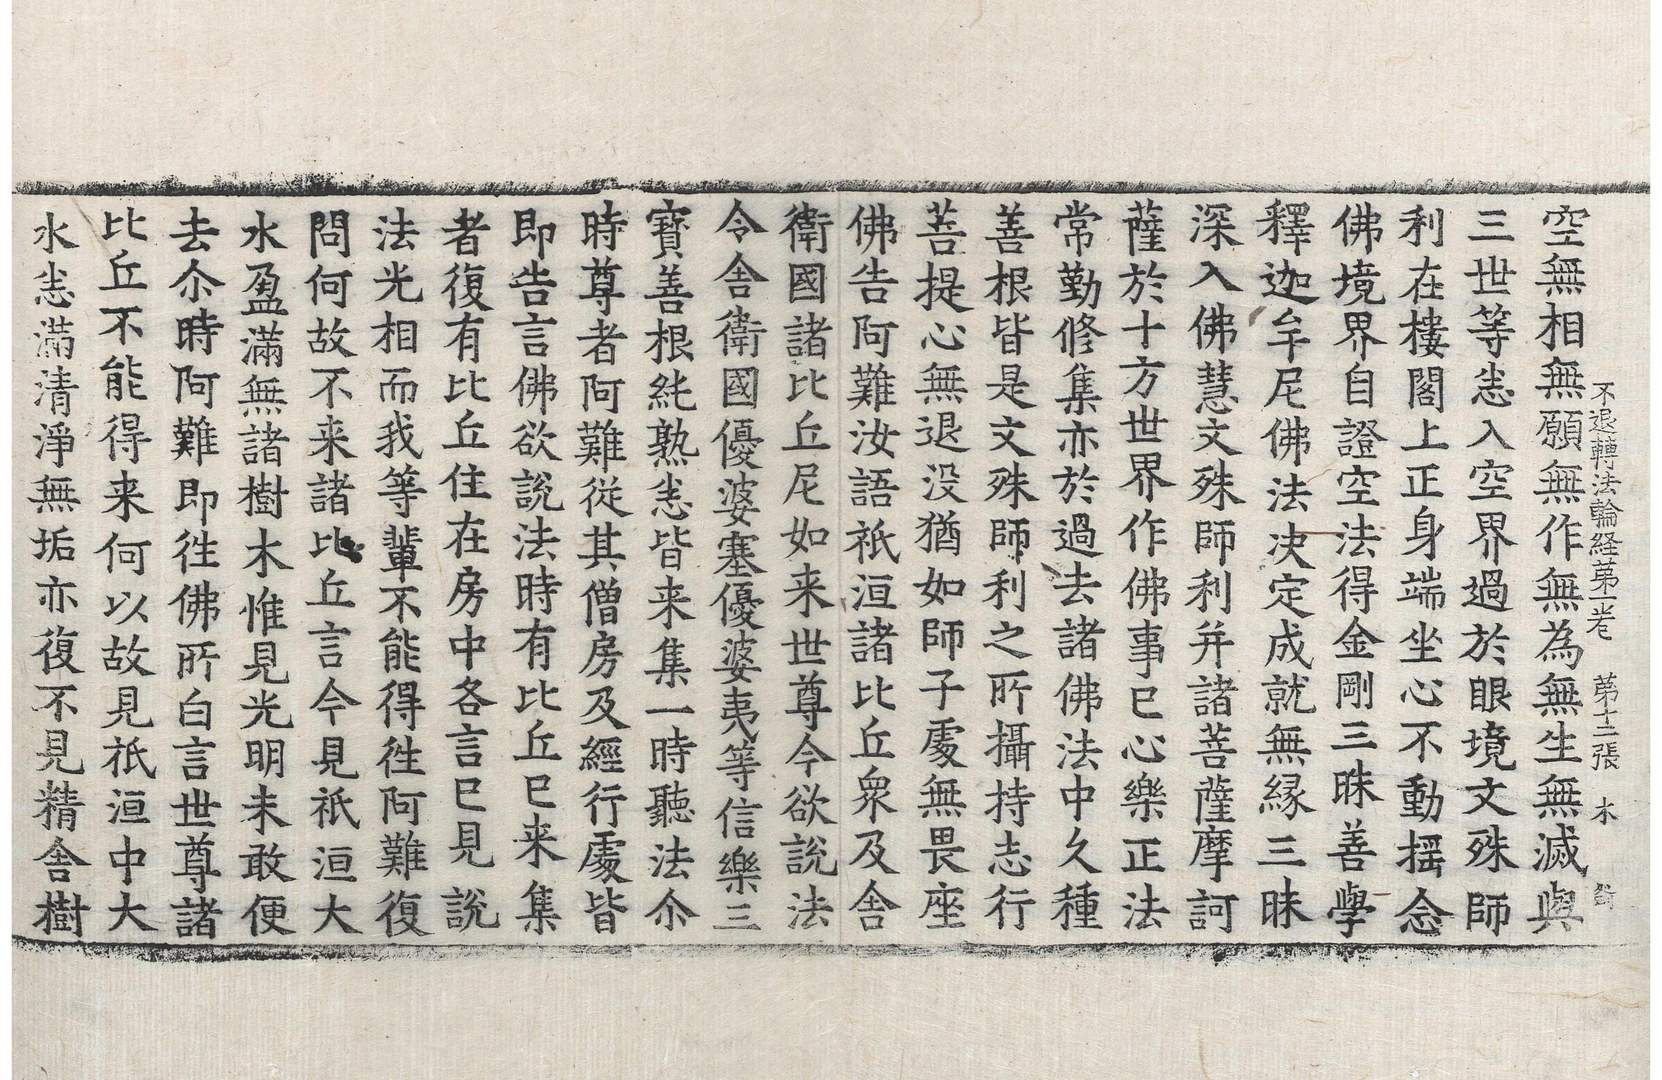 不退轉法輪経苐一卷 苐十二張 木
空無相無願無作無為無生無滅與
三世等恙入空界過於眼境文殊師
利在樓閣上正身端坐心不動揺念
佛境界自證空法得金剛三昧善學
釋迦牟尼佛法决定成就無縁三昧
深入佛慧文殊師利并諸菩薩摩訶
薩於十方世界作佛事已心樂正法
常勤修集亦於過去諸佛法中久種
善根皆是文殊師利之所攝持志行
菩提心無退没猶如師子䖏無畏座
佛告阿難汝語祇洹諸比丘衆及舍
衛國諸比丘尼如来世尊今欲說法
令舍衛國優婆塞優婆夷等信樂三
寳善根純熟恙皆来集一時聽法尒
時尊者阿難從其僧房及經行䖏皆
即告言佛欲說法時有比丘已来集
者復有比丘住在房中各言已見說
法光相而我等輩不能得徃阿難復
問何故不来諸比丘言今見祇洹大
水盈滿無諸樹木惟見光明未敢便
去尒時阿難即徃佛所白言世尊諸
比丘不能得来何以故見祇洹中大
水恙滿清淨無垢亦復不見精舍樹